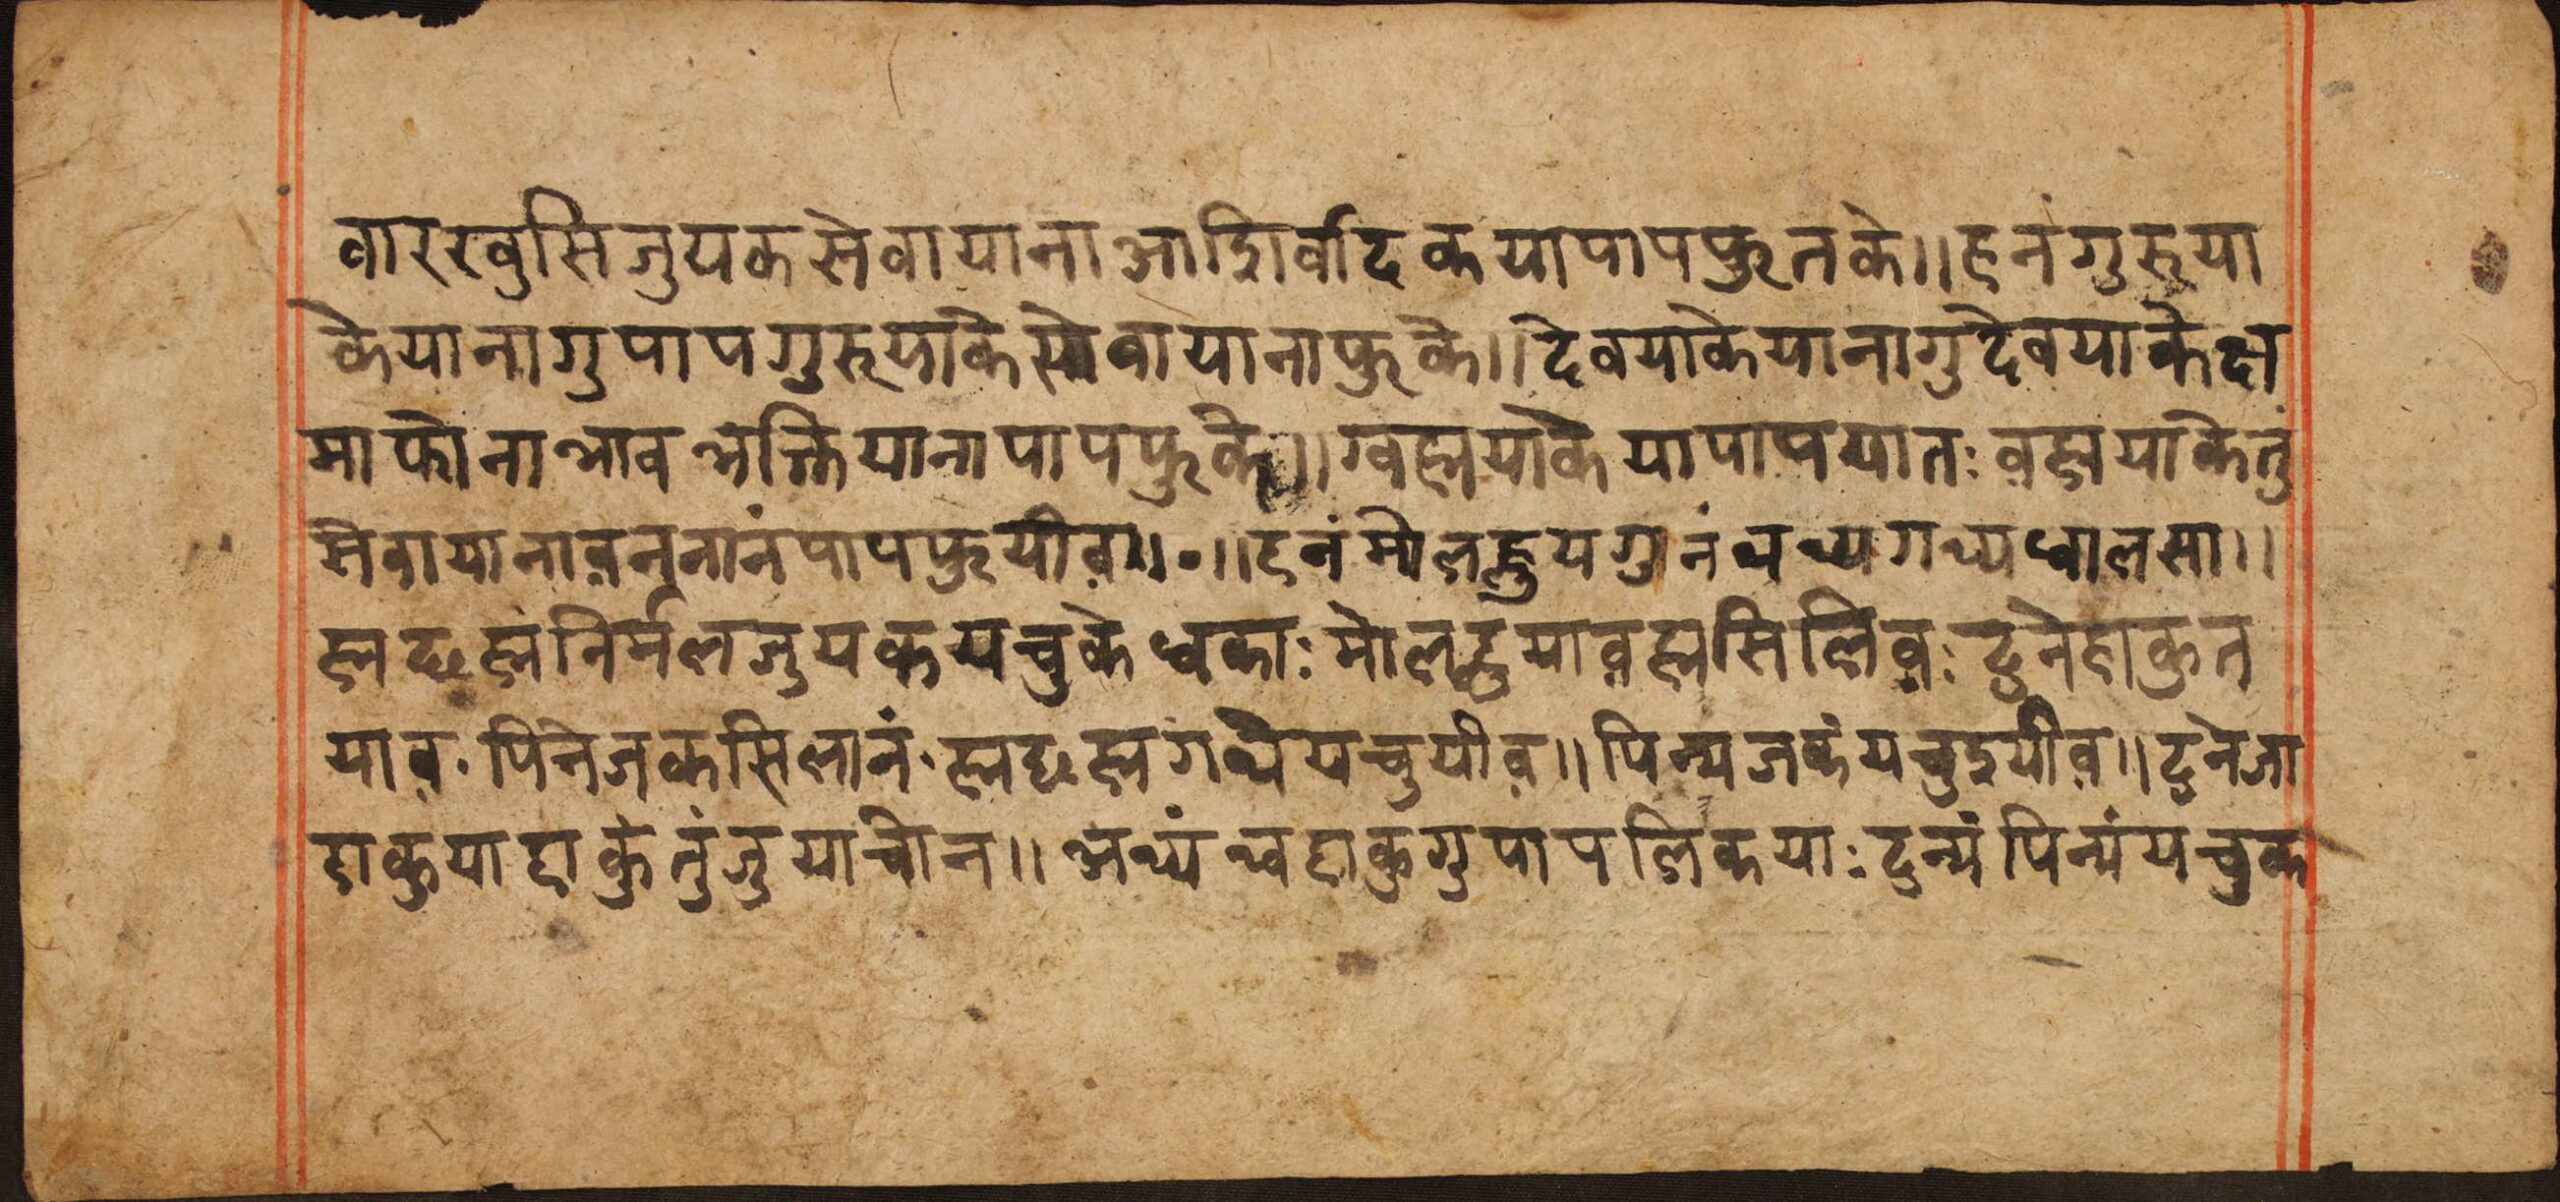 वारखुसिजुयकसेवायानाआशिर्वादकयापापफुतके॥हनंगुरुया
केयानागुपापगुरुयाकेसेवायानाफुके॥देवयाकेयानागुदेवयाकेक्ष
माफोनाभावभक्तियानापापफुके॥ग्वह्मयाकेयापापयातः व़ह्मयाकेतुं
सेवायानाव़नंनानंपापफुयीव़॥०॥हनंमोलह्नुयगुनंवथ्यगथ्यधालसा॥
ह्मछह्मनिर्मलजुयकयचुकेधकाः मोलह्नुयाव़ह्मसिलिव़ः दुनेहाकुत
याव़. पिनेजकसिलानं. ह्मछह्मगथेयचुयीव़॥पिन्यजकंयचुइयीव़॥दुनेजा
हाकुयाहाकुंतुंजुयाचोन॥अथ्यंथ्वहाकुगुपापलिकयाः दुन्यंपिन्यंयचुक